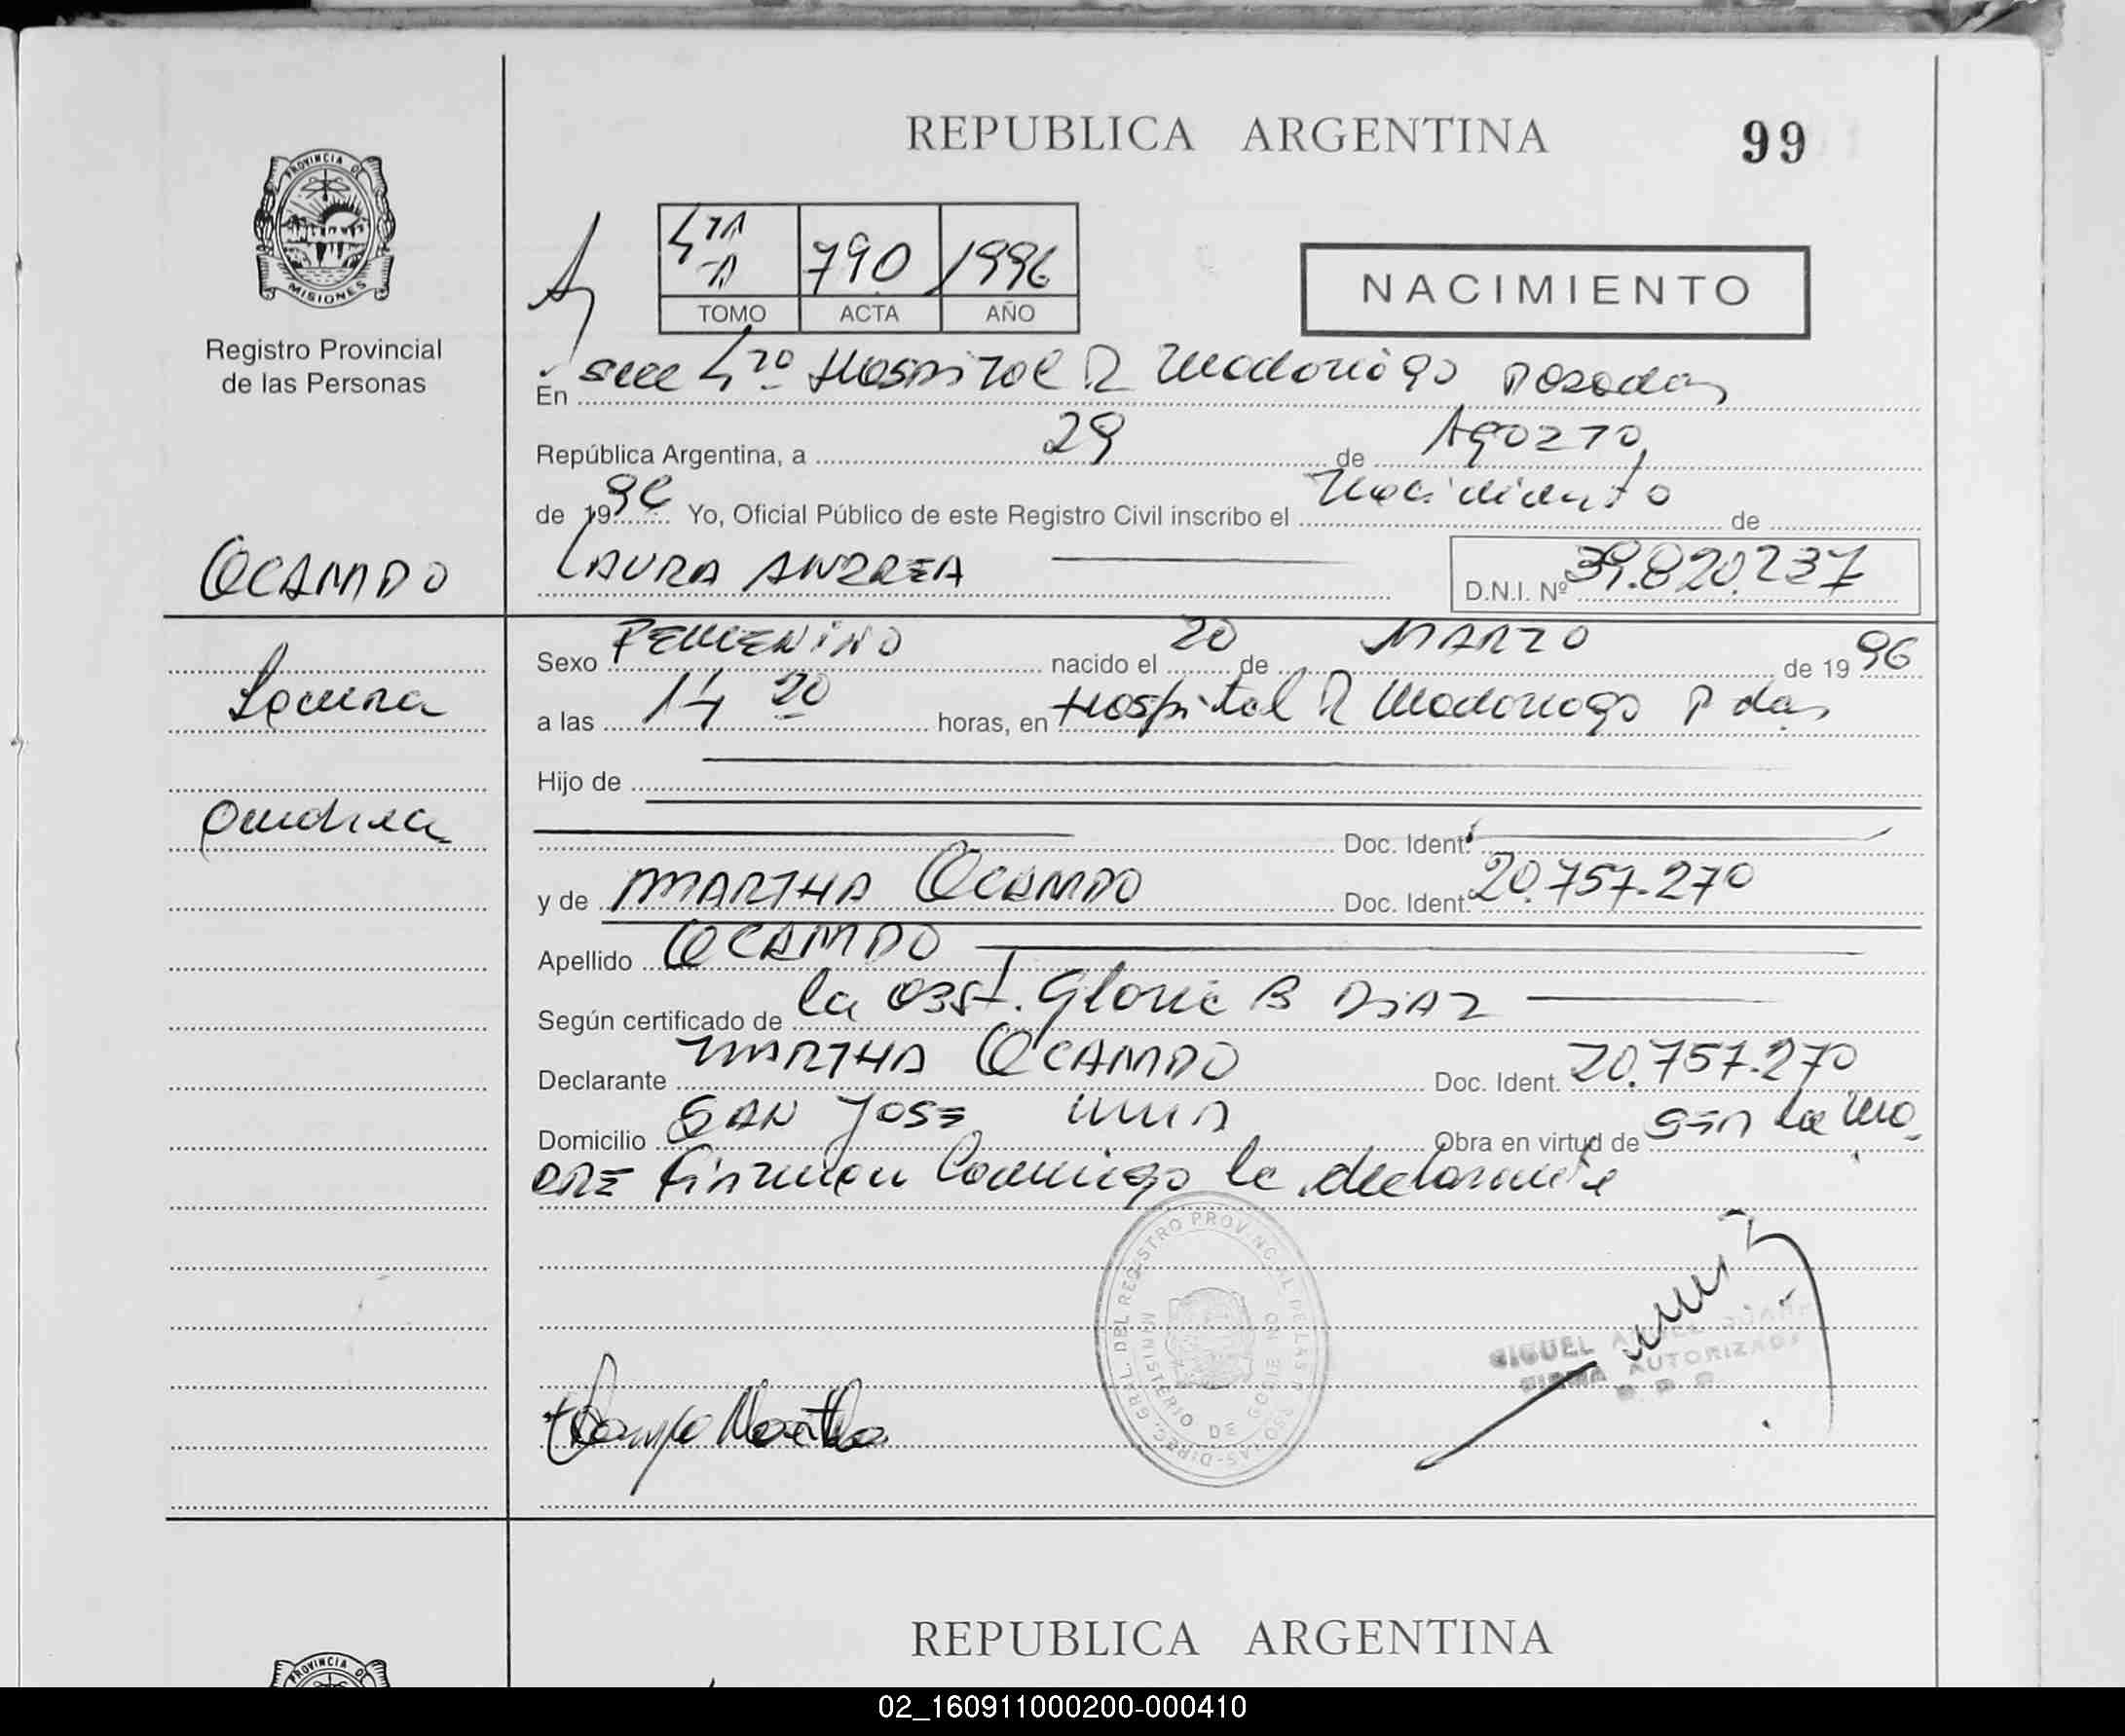 REPUBLICA ARGENTINA
99
PROVINCIA DE MISIONES
Registro Provincial
de las Personas
4TA
-A 790 1996
TOMO ACTA AÑO
NACIMIENTO
En Secc 4ta Hospital R Madariaga Posadas
República Argentina, a 29 de Agosto
de 1996 Yo, Oficial Público de este Registro Civil inscribo el Nacimiento de
OCAMPO
LAURA ANDREA
D.N.I. Nº 39.820.237
Sexo FEMENINO nacido el 20 de MARZO de 1996
Laura
a las 14 20 horas, en Hospital R Madariaga Pdas
Hijo de
Andrea
Doc. Ident.
y de MARTHA OCAMPO Doc. Ident. 20.757.270
Apellido OCAMPO
Según certificado de la OBST. Gloria B DIAZ
Declarante MARTHA OCAMPO Doc. Ident. 20.757.270
Domicilio SAN JOSE Obra en virtud de SER la MA
DRE Firman Conmigo la declarante
DIREC. GRAL. DEL REGISTRO PROVINCIAL DE LAS PERSONAS
MINISTERIO DE GOBIERNO
MIGUEL ANGEL
FIRMA AUTORIZADA
Ocampo Martha
REPUBLICA ARGENTINA
PROVINCIA DE
02_160911000200-000410